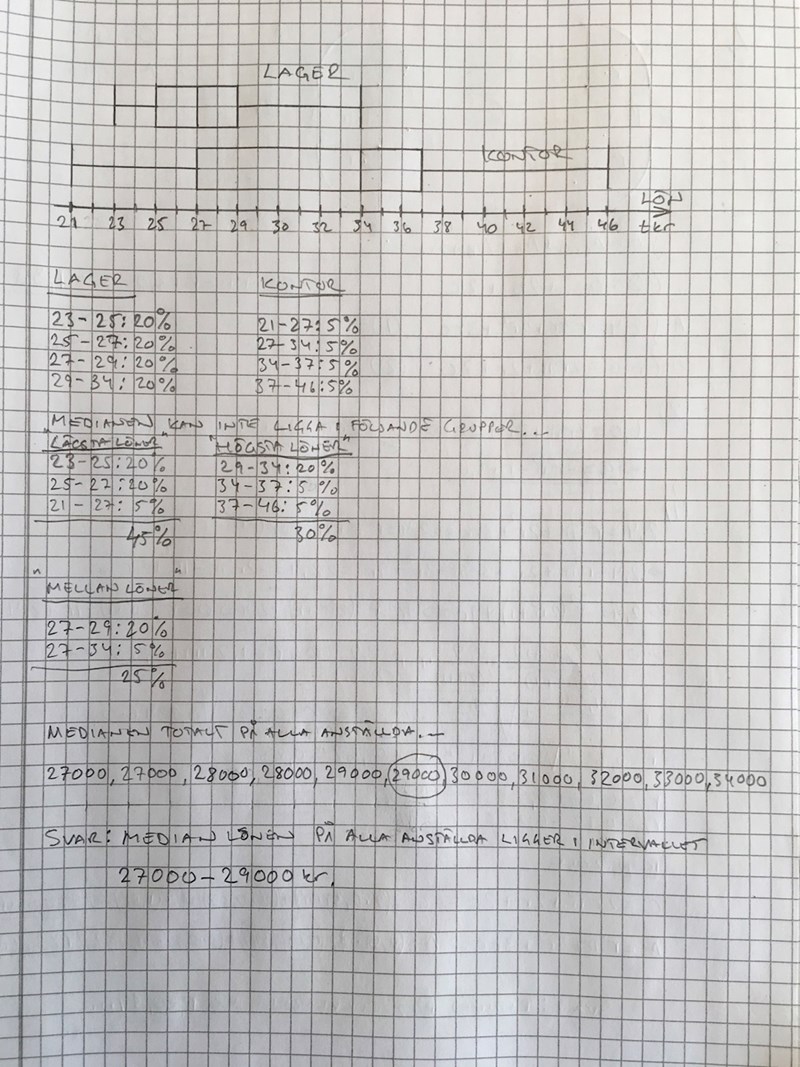 LAGER
KONTOR
LÖN
21 23 25 27 29 30 32 34 36 38 40 42 44 46 tkr
LAGER KONTOR
23-25:20% 21-27:5%
25-27:20% 27-34:5%
27-29:20% 34-37:5%
29-34:20% 37-46:5%
"MEDIANEN KAN INTE LIGGA I FÖLJANDE GRUPPER...
"LÄGSTA LÖNER" "HÖGSTA LÖNER"
23-25:20% 29-34:20%
25-27:20% 34-37:5%
21-27:5% 37-46:5%
45% 30%
"MELLAN LÖNER"
27-29:20%
27-34:5%
25%
MEDIANEN TOTALT PÅ ALLA ANSTÄLLDA...
27000, 27000, 28000, 28000, 29000, 29000, 30000, 31000, 32000, 33000, 34000
SVAR: MEDIAN LÖNEN PÅ ALLA ANSTÄLLDA LIGGER I INTERVALLET
27000-29000 kr.